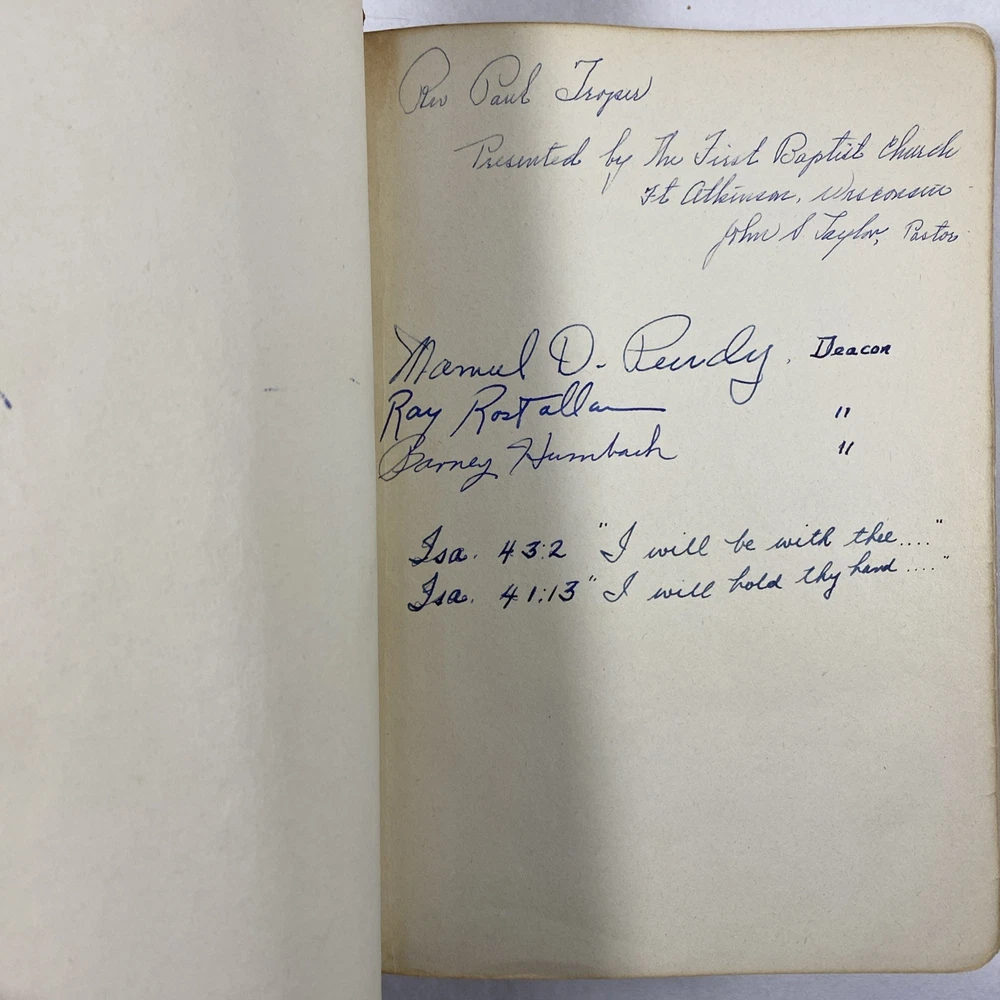 Rev Paul Troper
Presented by The First Baptist Church
Ft Atkinson, Wisconsin
John S Taylor, Pastor
Manuel D. Purdy. Deacon
Ray "
Barney Humbach "
Isa. 43:2 "I will be with thee...."
Isa. 41:13 "I will hold thy hand...."